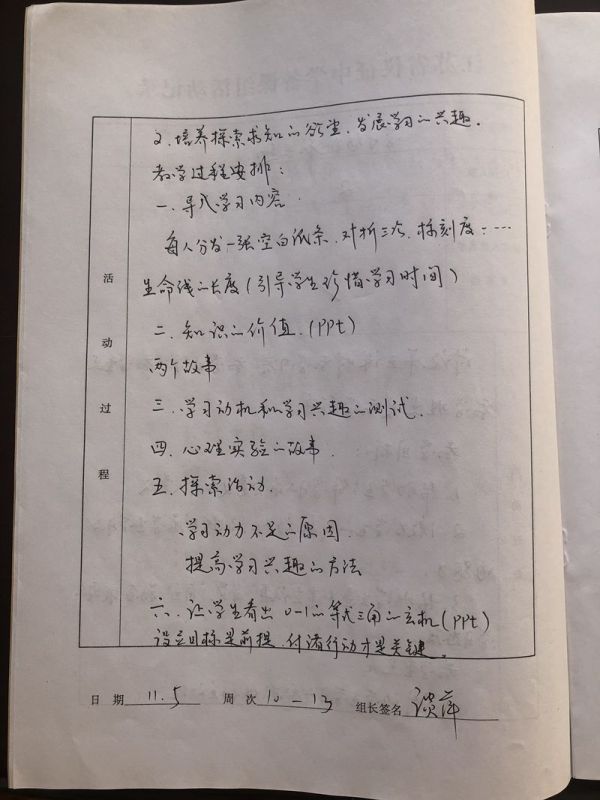 2. 培养探索求知的欲望、发展学习的兴趣。
教学过程安排:
一、导入学习内容.
每人分发一张空白纸条、对折三次、标刻度=……
生命线的长度(引导学生珍惜学习时间)
二、知识的价值.(PPt)
两个故事
三、学习动机和学习兴趣的测试.
四、心理实验的故事.
五、探索活动.
学习动力不足的原因.
提高学习兴趣的方法
六、让学生看出0-1的等式三角的玄机(PPt)
设立目标是前提、付诸行动才是关键。
活动过程
日 期 11.5 周 次 10-13 组长签名 谈萍